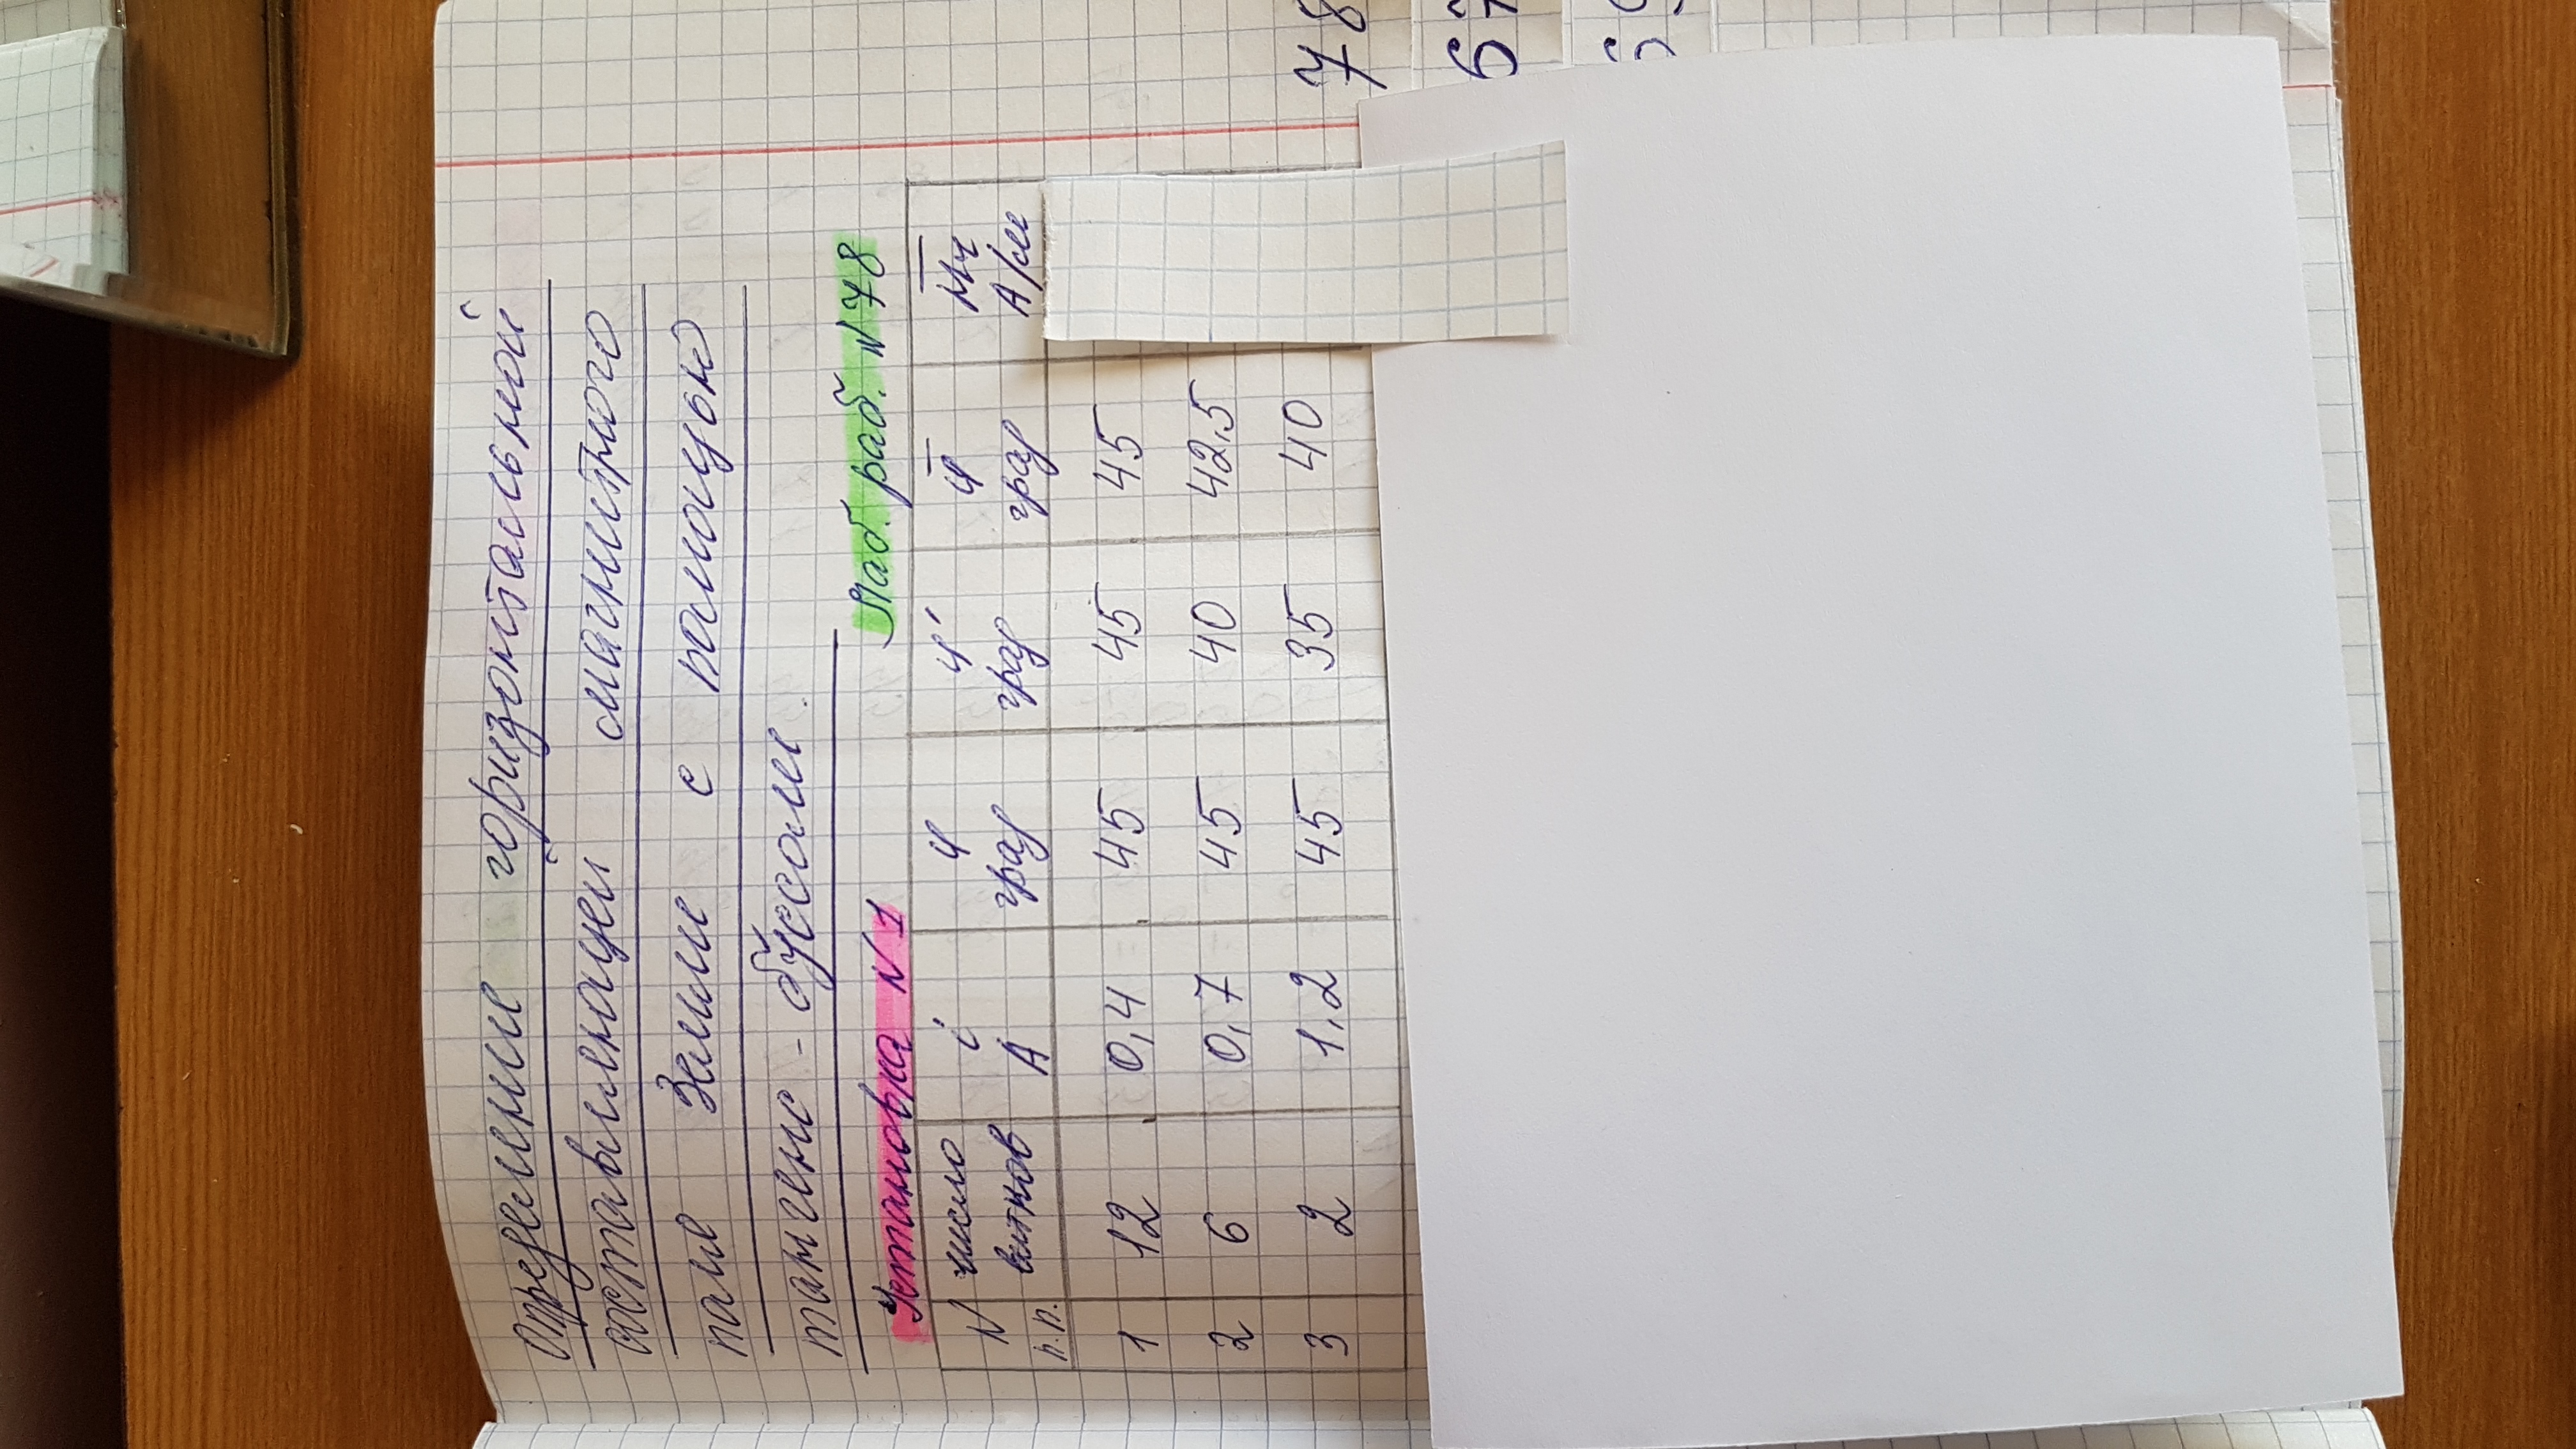 Определение горизонтальной
составляющей магнитного
поля Земли с помощью
тангенс - буссоли.
Установка N 1 Лаб. раб. N 78
N п.п. число витков i А φ град φ' град φ̅ град А/м
1 12 0,4 45 45 45
2 6 0,7 45 40 42,5
3 2 1,2 45 35 40
78
67